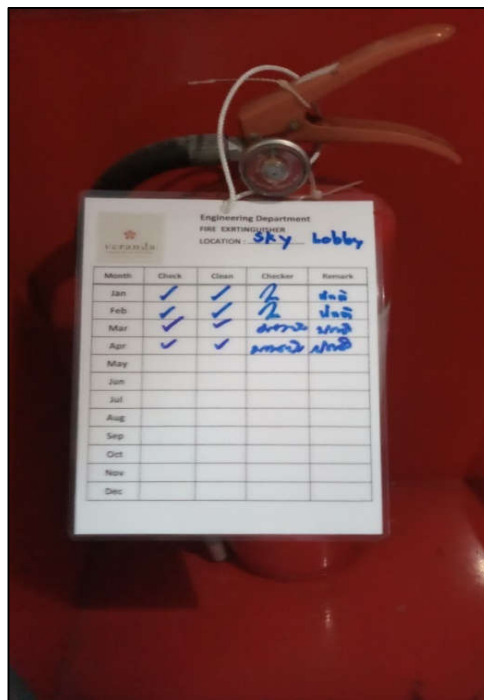 veranda
Engineering Department
FIRE EXRTINGUISHER
LOCATION : Sky Lobby
Month Check Clean Checker Remark
Jan ✓ ✓ ปกติ
Feb ✓ ✓ ปกติ
Mar ✓ ✓ ปกติ
Apr ✓ ✓ ปกติ
May
Jun
Jul
Aug
Sep
Oct
Nov
Dec